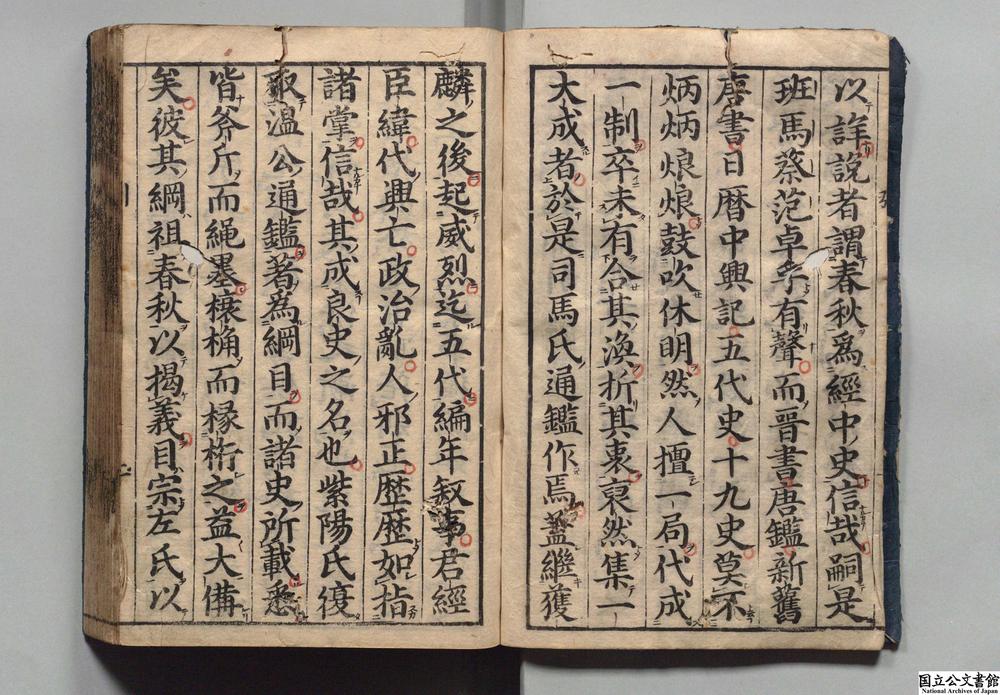 以詳説者謂春秋爲經中史信哉嗣是
班馬蔡范卓乎有聲而晋書唐鑑新舊
唐書日暦中興記五代史十九史莫不
炳炳烺烺鼓吹休明然人擅一局代成
一制卒未有合其渙折其衷裒然集一
大成者於是司馬氏通鑑作焉蓋継獲
麟之後起威烈迄五代編年叙事君經
臣緯代興亡政治亂人邪正歴歴如指
諸掌信哉其成良史之名也紫陽氏復
取温公通鑑著爲綱目而諸史所載悉
皆斧斤而繩墨榱桷而椽桁之益大備
矣彼其綱祖春秋以揭義目宗左氏以
国立公文書館
National Archives of Japan